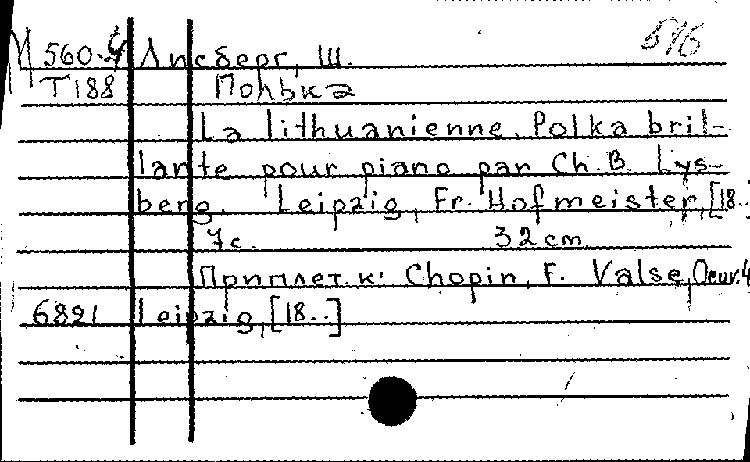 М 560-4 Лисберг, Ш. 516
Т 188 Полька
La lithuanienne. Polka bril-
lante pour piano par Ch. B. Lys-
berg. Leipzig, Fr. Hofmeister, [18..
7 с. 32 cm
Приплет. к: Chopin, F. Valse,
6821 Leipzig, [18..]